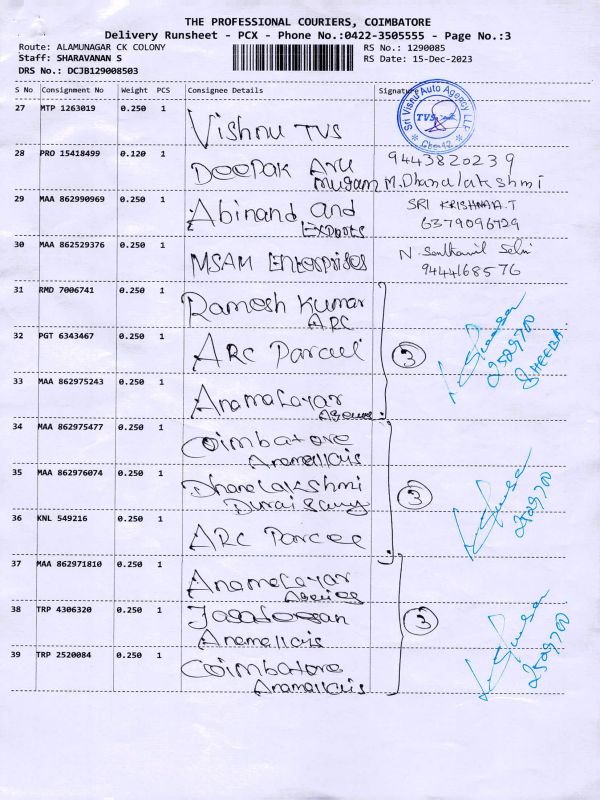 THE PROFESSIONAL COURIERS, COIMBATORE
Delivery Runsheet - PCX - Phone No.:0422-3505555 - Page No.:3
Route: ALAMUNAGAR CK COLONY RS No.: 1290085
Staff: SHARAVANAN S RS Date: 15-Dec-2023
DRS No.: DCJB129008503
S No Consignment No Weight PCS Consignee Details Signature
27 MTP 1263019 0.250 1 Vishnu TVS
Sri Vishnu Auto Agency LLP
TVS
Cbe-12
28 PRO 15418499 0.120 1 DEEPAK ARU 9443820239
mugam M. Dhanalakshmi
29 MAA 862990969 0.250 1 Abinand and SRI KRISHNAA.T
EXPORTS 6379096729
30 MAA 862529376 0.250 1 MSAM ENTERPRISES N. Senthamil Selvi
9444168576
31 RMD 7006741 0.250 1 Ramesh Kumar
ARC
32 PGT 6343467 0.250 1 ARC Parcel 3
2529700
SHEEBA
33 MAA 862975243 0.250 1 Anamalayar
Agencies
34 MAA 862975477 0.250 1 Coimbatore
Anamallais
35 MAA 862976074 0.250 1 Dhanalakshmi 3
Duraisamy 2529700
36 KNL 549216 0.250 1 ARC Parcel
37 MAA 862971810 0.250 1 Anamalayar
Agencies
38 TRP 4306320 0.250 1 3
Anamallais 2529700
39 TRP 2520084 0.250 1 Coimbatore
Anamallais